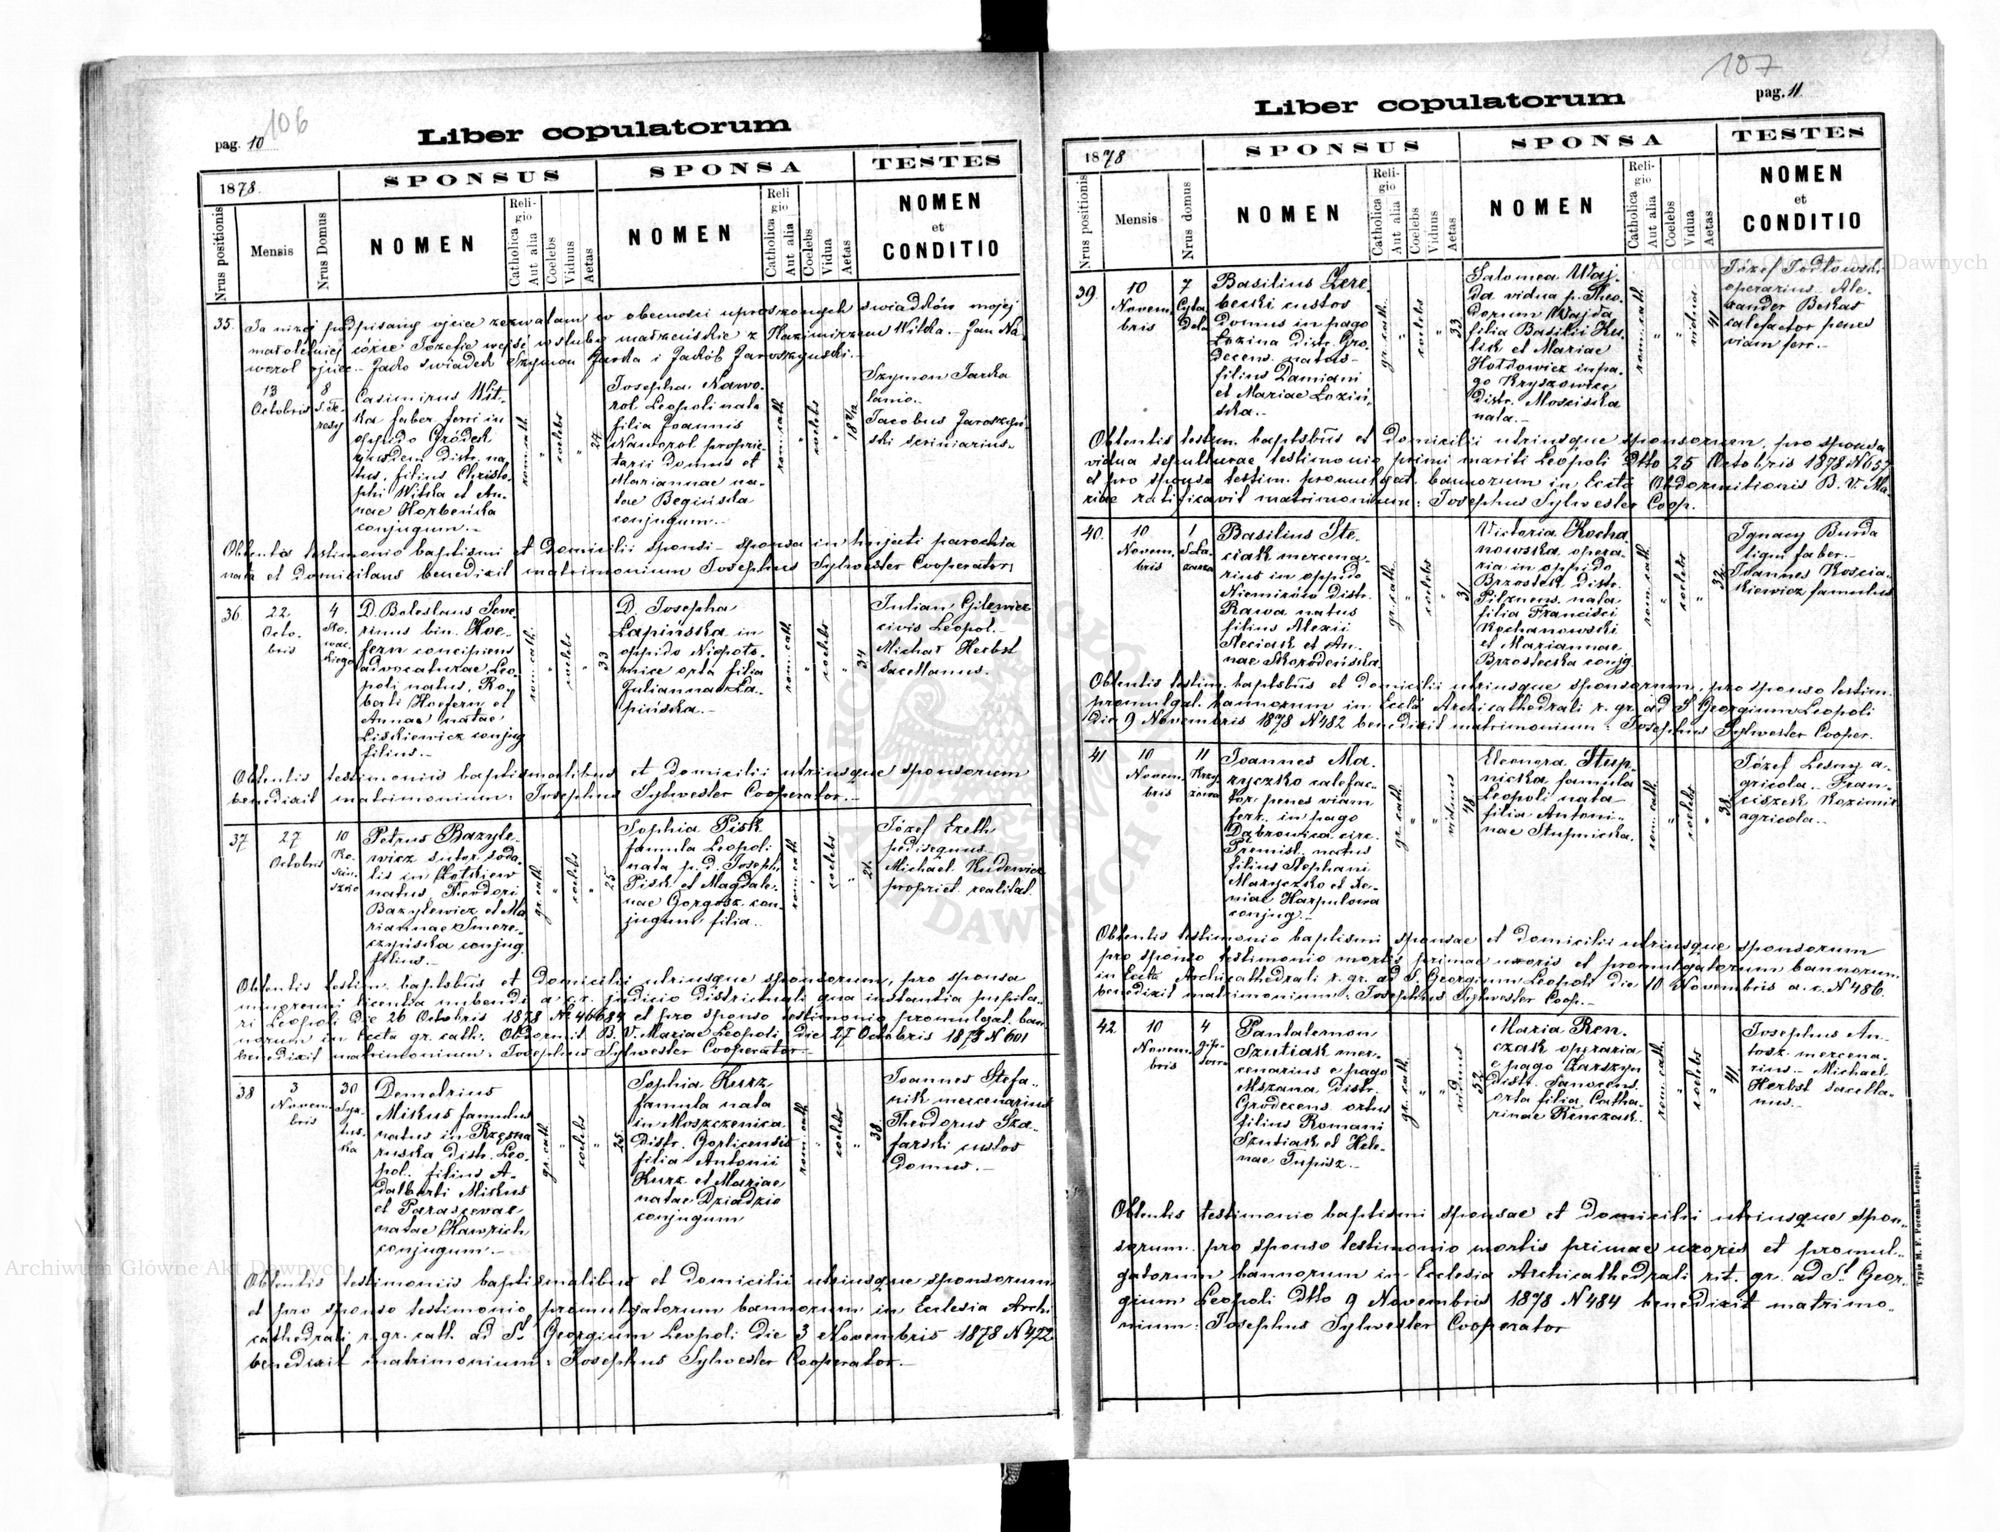 106
pag. 10
Liber copulatorum
1878.
SPONSUS
SPONSA
TESTES
Nrus positionis
Mensis
Nrus Domus
NOMEN
Religio
Catholica
Aut alia
Coelebs
Viduus
Aetas
NOMEN
Religio
Catholica
Aut alia
Coelebs
Vidua
Aetas
NOMEN
et
CONDITIO
35.
Ja niżej podpisany ojciec zezwalam w obecności uproszonych świadków mojej
małoletniej córce Józefie wejść w śluby małżeńskie z Kazimirzem Witka. Jan Na-
worol ojciec. Jako świadek Szymon Jarka i Jakób Jaroszyński.
13
Octobris
8
S. Te-
resy
Casimirus Wit-
ka faber ferri in
oppido Gródek
ejusdem distr. na-
tus, filius Christo-
phi Witka et An-
nae Horbeńska
conjugum.
rom. cath.
coelebs
24
Josepha Nawo-
rol Leopoli nata
filia Joannis
Naworol proprie-
tarii domus et
Mariannae na-
tae Begińska
conjugum.
rom. cath.
coelebs
Szymon Jarka
lanio.
Jacobus Jaroszyń-
ski scriniarius.
Obtento testimonio baptismi et domicilii sponsi - sponsa in hujati parochia
nata et domicilians benedixit matrimonium Josephus Sylwester Cooperator.
36
22.
Octo-
bris
4
Sło-
wac-
kiego
D. Boleslaus Seve-
rinus bin. Hoe-
fern concipiens
advocaturae Leo-
poli natus, Ro-
berti Hoefern et
Annae natae
Liskiewicz conjug
filius.
rom. cath.
coelebs
33
D. Josepha
Łapińska in
oppido Niepoło-
mice orta filia
Juliannae Ła-
pińska.
rom. cath.
coelebs
34
Julian Gilewicz
civis Leopol.
Michał Herbst
sacellanus.
Obtentis testimoniis baptismalibus et domicilii utriusque sponsorum
benedixit matrimonium: Josephus Sylwester Cooperator.
37
27
Octobris
10
Ko-
ściu-
szko
Petrus Bazyle-
wicz sutor. soda-
lis in
natus, Theodori
Bazylewicz et Ma-
riannae Smere-
czyńska conjug.
filius.
gr. cath.
coelebs
25
Sophia Pisk
famula Leopoli
nata p. d. Josephi
Pisk et Magdale-
nae Gorgosz con-
jugum filia.
rom. cath.
coelebs
21.
Józef Ereth
pedisequus.
Michael Kudewicz
propriet. realitat.
Obtentis testim. baptsbus et domicilii utriusque sponsorum, pro sponsa
minorenni licentia nubendi a c. r. judicio districtuali qua instantia pupilla-
ri Leopoli die 26 Octobris 1878 No 46684 et pro sponso testimonio promulgat. ban-
norum in Eccla gr. cath. Obdormit. B. V. Mariae Leopoli die 27 Octobris 1878 N 601
benedixit matrimonium: Josephus Sylwester Cooperator.
38
3
Novem-
bris
30
Syx-
tus-
ka
Demetrius
Mikus famulus
natus in Rzęsna
ruska distr. Leo-
pol. filius A-
dalberti Mikus
et Parascevae
natae Hawrich
conjugum.
gr. cath.
coelebs
25.
Sophia Kurz
famula nata
in Moszczenica
distr. Gorlicensis
filia Antonii
Kurz et Mariae
natae Dziadzio
conjugum
rom. cath.
coelebs
38.
Joannes Stefa-
nik mercenarius
Theodorus Sza-
farski custos
domus.
Obtentis testimoniis baptismalibus et domicilii utriusque sponsorum
et pro sponso testimonio promulgatorum bannorum in Eclesia Archi
cathedrali r. gr. cath. ad St. Georgium Leopoli die 3 Novembris 1878 N 472
benedixit matrimonium: Josephus Sylwester Cooperator.
107
pag. 11
Liber copulatorum
1878
SPONSUS
SPONSA
TESTES
Nrus positionis
Mensis
Nrus domus
NOMEN
Religio
Catholica
Aut alia
Coelebs
Viduus
Aetas
NOMEN
Religio
Catholica
Aut alia
Coelebs
Vidua
Aetas
NOMEN
et
CONDITIO
39.
10
Novem-
bris
7
Cyta-
dela
Basilius Zere-
becki custos
domus in pago
Łozina distr. Gro-
decens. natus
filius Damiani
et Mariae Łoziń-
ska.
gr. cath.
coelebs
33
Salomea Waj-
da vidua p. Theo-
dorum Wajda
filia Basilii Ku-
lik et Mariae
Hołdowicz in pa-
go Kryszowice
distr. Mościska
nata.
rom. cath.
vidua
41
Józef Jodłowski
operarius. Ale-
xander Beskas
calefactor penes
viam ferr.
Obtentis testim. baptsbus et domicilii utriusque sponsorum, pro sponsa
vidua sepulturae testimonio primi mariti Leopoli dtto 25 Octobris 1878 N 657
et pro sponso testim. promulgat. bannorum in Eccla Obdormitionis B. V. Ma-
riae ratificavit matrimonium: Josephus Sylwester Coop.
40.
10
Novem-
bris
1
S. Ła-
zarza
Basilius Ste-
ciak mercena-
rius in oppido
Niemirów distr.
Rawa natus
filius Alexii
Steciak et An-
nae Skorodeńska
gr. cath.
coelebs
31
Victoria Kocha
nowska opera-
ria in oppido
Brzostek distr.
Pilznens. nata
filia Francisci
Kochanowski
et Mariannae
Brzostecka conjg
rom. cath.
coelebs
32.
Ignacy Burda
lign. faber.
Joannes Koscia-
kiewicz famulus
Obtentis testim. baptsbus et domicilii utriusque sponsorum, pro sponso testim.
promulgat. bannorum in Eccla Archicathedrali r. gr. ad S. Georgium Leopoli
die 9 Novembris 1878 N 482 benedixit matrimonium: Josephus Sylwester Cooper.
41
10
Novem-
bris
11
Krzy-
żowa
Joannes Ma-
ryczko calefac-
tor penes viam
ferr. in pago
Dąbrowica circ.
Premisl. natus
filius Stephani
Maryczko et Xe-
niae Harpulowa
conjug.
gr. cath.
viduus
48
Eleonora Stup-
nicka famula
Leopoli nata
filia Antoni-
nae Stupnicka.
rom. cath.
coelebs
38.
Józef Leśny a-
gricola. Fran-
ciszek Kozimir
agricola.
Obtentis testimonio baptismi sponsae et domicilii utriusque sponsorum
pro sponso testimonio mortis primae uxoris et promulgatorum bannorum
in Eccla Archicathedrali r. gr. ad S. Georgium Leopoli die 10 Novembris a. c. N 486.
benedixit matrimonium: Josephus Sylwester Coop.
42.
10
Novem-
bris
4
Gips-
owa
Pantalemon
Szutiak mer-
cenarius e pago
Mszana distr.
Grodecens. ortus
filius Romani
Szutiak et Hele-
nae Tupisz.
gr. cath.
viduus
52
Maria Ren-
czak operaria
e pago Zarszyn
distr. Sanocens.
orta filia Catha-
rinae Renczak.
rom. cath.
coelebs
41
Josephus An-
tosz mercena-
rius. Michael
Herbst sacella-
nus.
Obtentis testimonio baptismi sponsae et domicilii utriusque spon-
sorum pro sponso testimonio mortis primae uxoris et promul-
gatorum bannorum in Ecclesia Archicathedrali rit. gr. ad St. Geor-
gium Leopoli dtto 9 Novembris 1878 N 484 benedixit matrimo-
nium: Josephus Sylwester Cooperator
Typis M. F. Poremba Leopoli.
Archiwum Główne Akt Dawnych
Archiwum Główne Akt Dawnych
ARCHIWUM GŁÓWNE AKT DAWNYCH